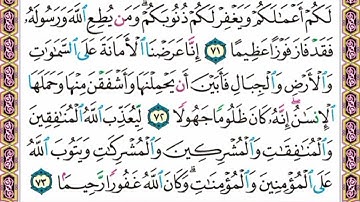 لَكُمْ أَعْمَٰلَكُمْ وَيَغْفِرْ لَكُمْ ذُنُوبَكُمْ ۗ وَمَن يُطِعِ ٱللَّهَ وَرَسُولَهُۥ
فَقَدْ فَازَ فَوْزًا عَظِيمًا ٧١ إِنَّا عَرَضْنَا ٱلْأَمَانَةَ عَلَى ٱلسَّمَٰوَٰتِ
وَٱلْأَرْضِ وَٱلْجِبَالِ فَأَبَيْنَ أَن يَحْمِلْنَهَا وَأَشْفَقْنَ مِنْهَا وَحَمَلَهَا
ٱلْإِنسَٰنُ ۖ إِنَّهُۥ كَانَ ظَلُومًا جَهُولًا ٧٢ لِّيُعَذِّبَ ٱللَّهُ ٱلْمُنَٰفِقِينَ
وَٱلْمُنَٰفِقَٰتِ وَٱلْمُشْرِكِينَ وَٱلْمُشْرِكَٰتِ وَيَتُوبَ ٱللَّهُ
عَلَى ٱلْمُؤْمِنِينَ وَٱلْمُؤْمِنَٰتِ ۗ وَكَانَ ٱللَّهُ غَفُورًا رَّحِيمًۢا ٧٣